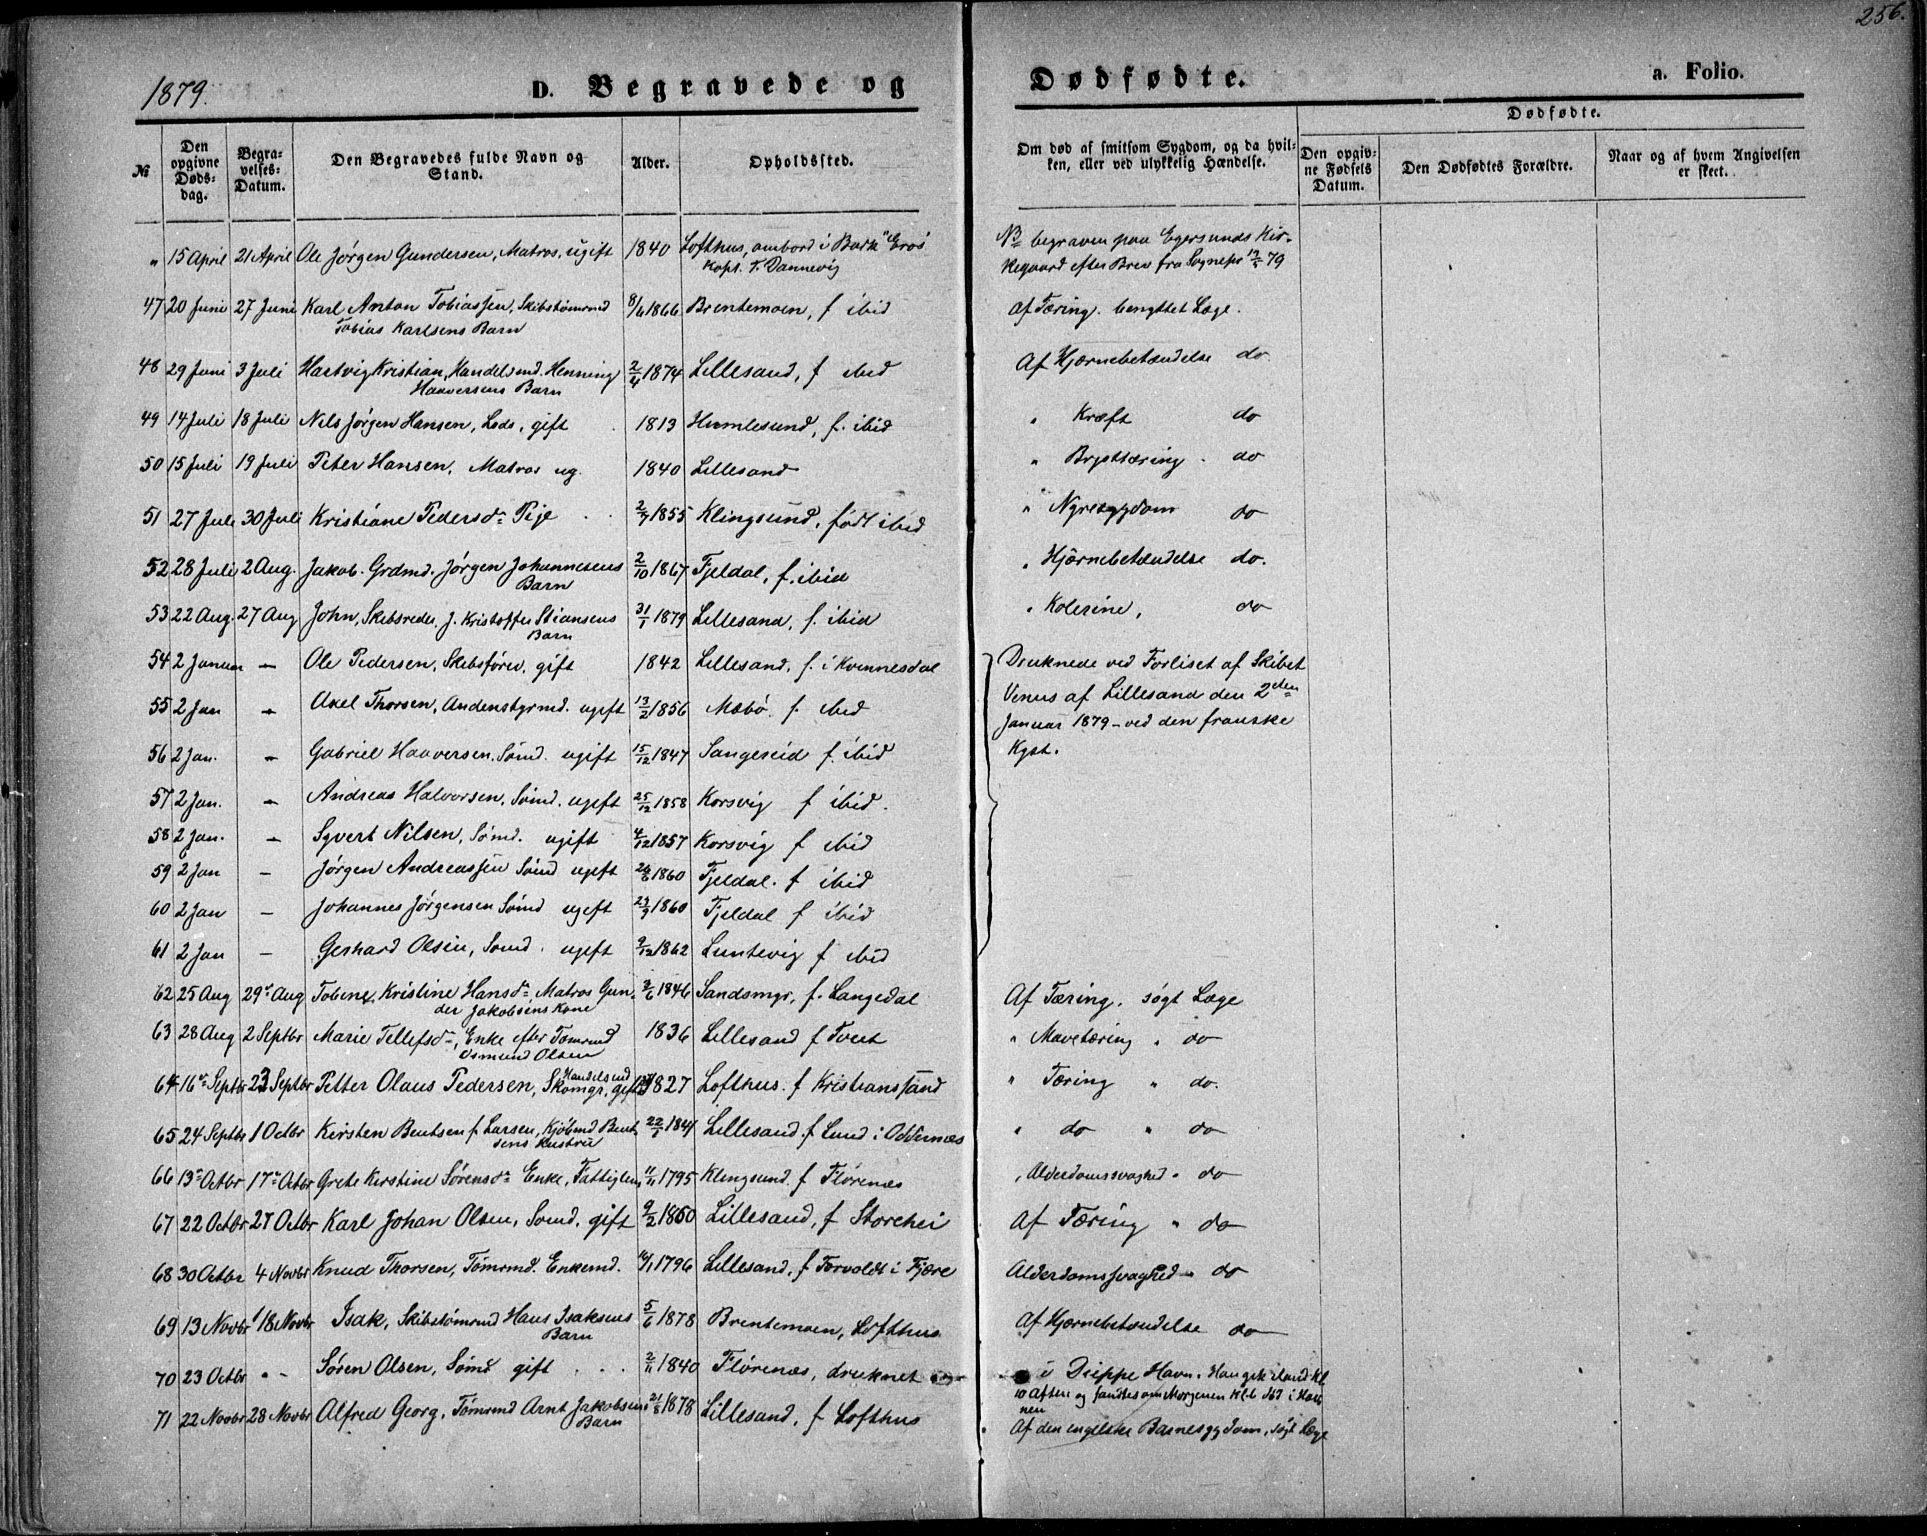 256.
1879.
D. Begravede og Dødfødte. a. Folio.
№
Den opgivne Døds-dag.
Begra-velses-Datum.
Den Begravedes fulde Navn og Stand.
Alder.
Opholdssted.
Om død af smitsom Sygdom, og da hvil-ken, eller ved ulykkelig Hændelse.
Dødfødte.
Den opgiv-ne Fødsels Datum.
Den Dødfødtes Forældre.
Naar og af hvem Angivelsen er skeet.
" 15 April 21 April Ole Jørgen Gundersen, Matros, ugift 1840 Lofthus, ombord i Bark "Eros" begraven paa Egersunds Kir-
Kapt. T. Dannevig kegaard efter Brev fra Sognepr 79
47 20 Juni 27 Juni Karl Anton Tobiassen, Skibstømrmd 8/6 1866 Brentemoen, f ibid Af Tæring. benyttet Læge.
Tobias Karlsens Barn
48 29 Juni 3 Juli Hartvig Kristian, Handelsmd. Henning 2/4 1874 Lillesand, f ibid Af Hjærnebetændelse do
Haaversens Barn
49 14 Juli 18 Juli Nils Jørgen Hansen, Lods, gift 1813 Humlesund, f. ibid " Kræft do
50 15 Juli 19 Juli Peter Hansen, Matros ug. 1840 Lillesand " Brysttæring - do
51 27 Juli 30 Juli Kristiane Pedersdr Pige 2/7 1855 Klingsund, født ibid " Nyresygdom do
52 28 Juli 2 Aug. Jakob. Grdmd. Jørgen Johannesens 2/10 1867 Fjeldal, f. ibid " Hjørnebetændelse do.
Barn
53 22 Aug. 27 Aug John, Skibsreder, J. Kristoffer Stiansens 31/1 1879 Lillesand, f. ibid " Kolerine, do
Barn
54 2 Januar — Ole Pedersen, Skibsfører, gift 1842 Lillesand, f. i Kvinnesdal Druknede ved Forliset af Skibet
55 2 Jan — Axel Thorsen, Andenstyrmd. ugift 13/2 1856 Mæbø. f. ibid Venus af Lillesand den 2den
Januar 1879 - ved den franske
56 2 Jan. — Gabriel Haaversen, Sømd. ugift 15/12 1847 Sangereid f. ibid Kyst.
57 2 Jan. — Andreas Halvorsen, Sømd. ugift 25/12 1858 Korsvig f ibid.
58 2 Jan. — Syvert Nilsen, Sømd. ugift 4/12 1857 Korsvig f ibid
59 2 Jan — Jørgen Andreassen Sømd ugift 1860 Fjeldal. f ibid
60 2 Jan — Johannes Jørgensen Sømd ugift 1860 Fjeldal f ibid
61 2 Jan — Gerhard Olsen, Sømd. ugift 9/12 1862 Luntevig f ibid
62 25 Aug 29 Aug Tobine Kristine Hansdr Matros Gun- 1846 Sandsmyr, f. Langedal Af Tæring. søgt Læge
der Jakobsens Kone
63 28 Aug 2 Septbr Marie Tellefsdr, Enke efter Tømrmd 1836 Lillesand f Tveit " Mavetæring " do
Osmund Olsen
64 16 Septbr 23 Septbr Petter Olaus Pedersen, Handelsmd Skomgr, gift 1827 Lofthus. f Kristianssand " Tæring " do.
65 24 Septbr 1 Octbr Kirsten Bentsen f. Larsen, Kjøbmd Bent- 1841 Lillesand f Lund i Oddernæs " do " do
sens Hustru
66 13 Octbr 17 Octbr Grete Kirstine Sørensdr Enke, Fattiglem 11/11 1795 Klingsund f Flørenæs " Alderdomssvaghed " do
67 22 Octbr 27 Octbr Karl Johan Olsen, Sømd. gift 9/2 1850 Lillesand, f Storehei Af Tæring " do
68 30 Octbr 4 Novbr Knud Thorsen, Tømrmd. Enkemd. 1796 Lillesand, f Forvoldt i Fjære Alderdomssvaghed - do
69 13 Novbr 18 Novbr Isak, Skibstømrmd Hans Isaksens 5/6 1878 Brentemoen, Lofthus Af Hjærnebetændelse do
Barn
70 23 Octbr " - Søren Olsen, Sømd gift 2/11 1840 Flørenæs, druknet i Dieppe Havn. Han gik iland Kl
10 Aften og fandtes om Morgenen Kl. 6 død i Hav-
nen
71 22 Novbr 28 Novbr Alfred Georg, Tømrmd Arnt Jakobsens 21/8 1878 Lillesand, f Lofthus Af den engelske Barnesygdom, søgt Læge
Barn